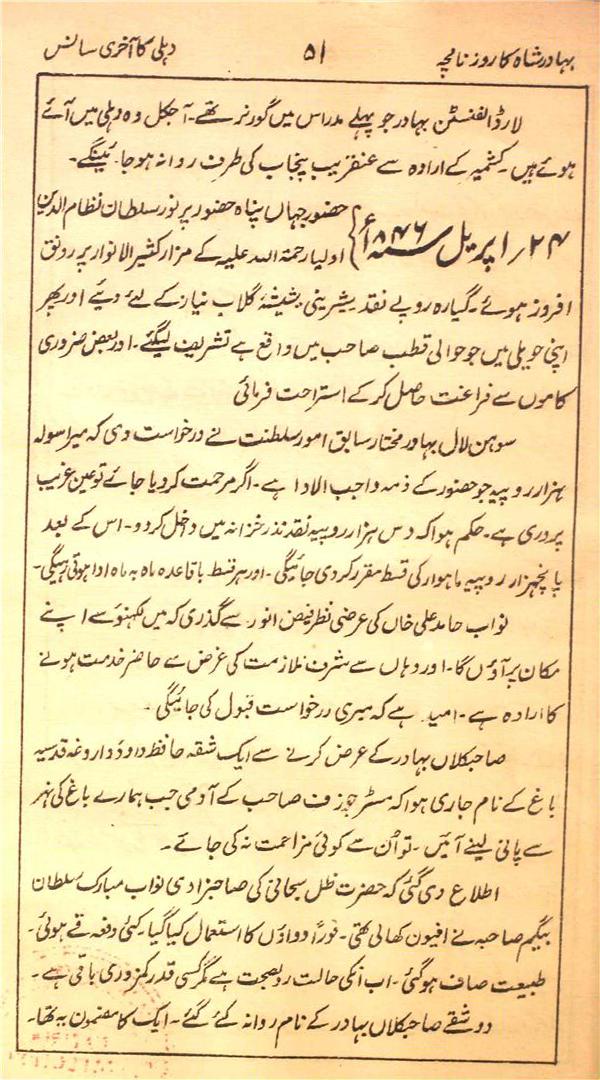 بہادر شاہ کا روزنامچہ ۵۱ دہلی کا آخری سانس
لارڈ الفنسٹن بہادر جو پہلے مدراس میں گورنر تھے۔ آجکل وہ دہلی میں آئے
ہوئے ہیں۔ کشمیر کے ارادہ سے عنقریب پنجاب کی طرف روانہ ہو جائینگے۔
۲۴/ اپریل ۱۸۴۶ء} حضور جہاں پناہ حضور پر نور سلطان نظام الدین
اولیا رحمۃ اللہ علیہ کے مزار کثیر الانوار پر رونق
افروز ہوئے۔ گیارہ روپے نقد شیرینی شیشۂ گلاب نیاز کے لئے دیئے اور پھر
اپنی حویلی میں جو حوالی قطب صاحب میں واقع ہے تشریف لیگئے۔ اور بعض ضروری
کاموں سے فراغت حاصل کر کے استراحت فرمائی
سوہن لال بہادر مختار سابق امور سلطنت نے درخواست دی کہ میرا سولہ
ہزار روپیہ جو حضور کے ذمہ واجب الادا ہے۔ اگر مرحمت کر دیا جائے تو عین غریب
پروری ہے۔ حکم ہوا کہ دس ہزار روپیہ نقد نذر خزانہ میں داخل کر دو۔ اس کے بعد
پانچہزار روپیہ ماہوار کی قسط مقرر کر دی جائیگی۔ اور ہر قسط باقاعدہ ماہ بہ ماہ ادا ہوتی رہیگی۔
نواب حامد علی خاں کی عرضی نظر فیض انور سے گذری کہ میں لکھنؤ سے اپنے
مکان پر آؤں گا۔ اور وہاں سے شرف ملازمت کی غرض سے حاضر خدمت ہونے
کا ارادہ ہے۔ امید ہے کہ میری درخواست قبول کی جائیگی۔
صاحبکلاں بہادر کے عرض کرنے سے ایک شقہ حافظ داؤد داروغہ قدسیہ
باغ کے نام جاری ہوا کہ مسٹر جوزف صاحب کے آدمی جب ہمارے باغ کی نہر
سے پانی لینے آئیں۔ تو اُن سے کوئی مزاحمت نہ کی جائے۔
اطلاع دی گئی کہ حضرت ظل سبحانی کی صاحبزادی نواب مبارک سلطان
بیگم صاحبہ نے افیون کھا لی تھی۔ فوراً دواؤں کا استعمال کیا گیا۔ کئی دفعہ قے ہوئی۔
طبیعت صاف ہو گئی۔ اب انکی حالت رو بصحت ہے مگر کسی قدر کمزوری باقی ہے۔
دو شقے صاحبکلاں بہادر کے نام روانہ کئے گئے۔ ایک کا مضمون یہ تھا۔